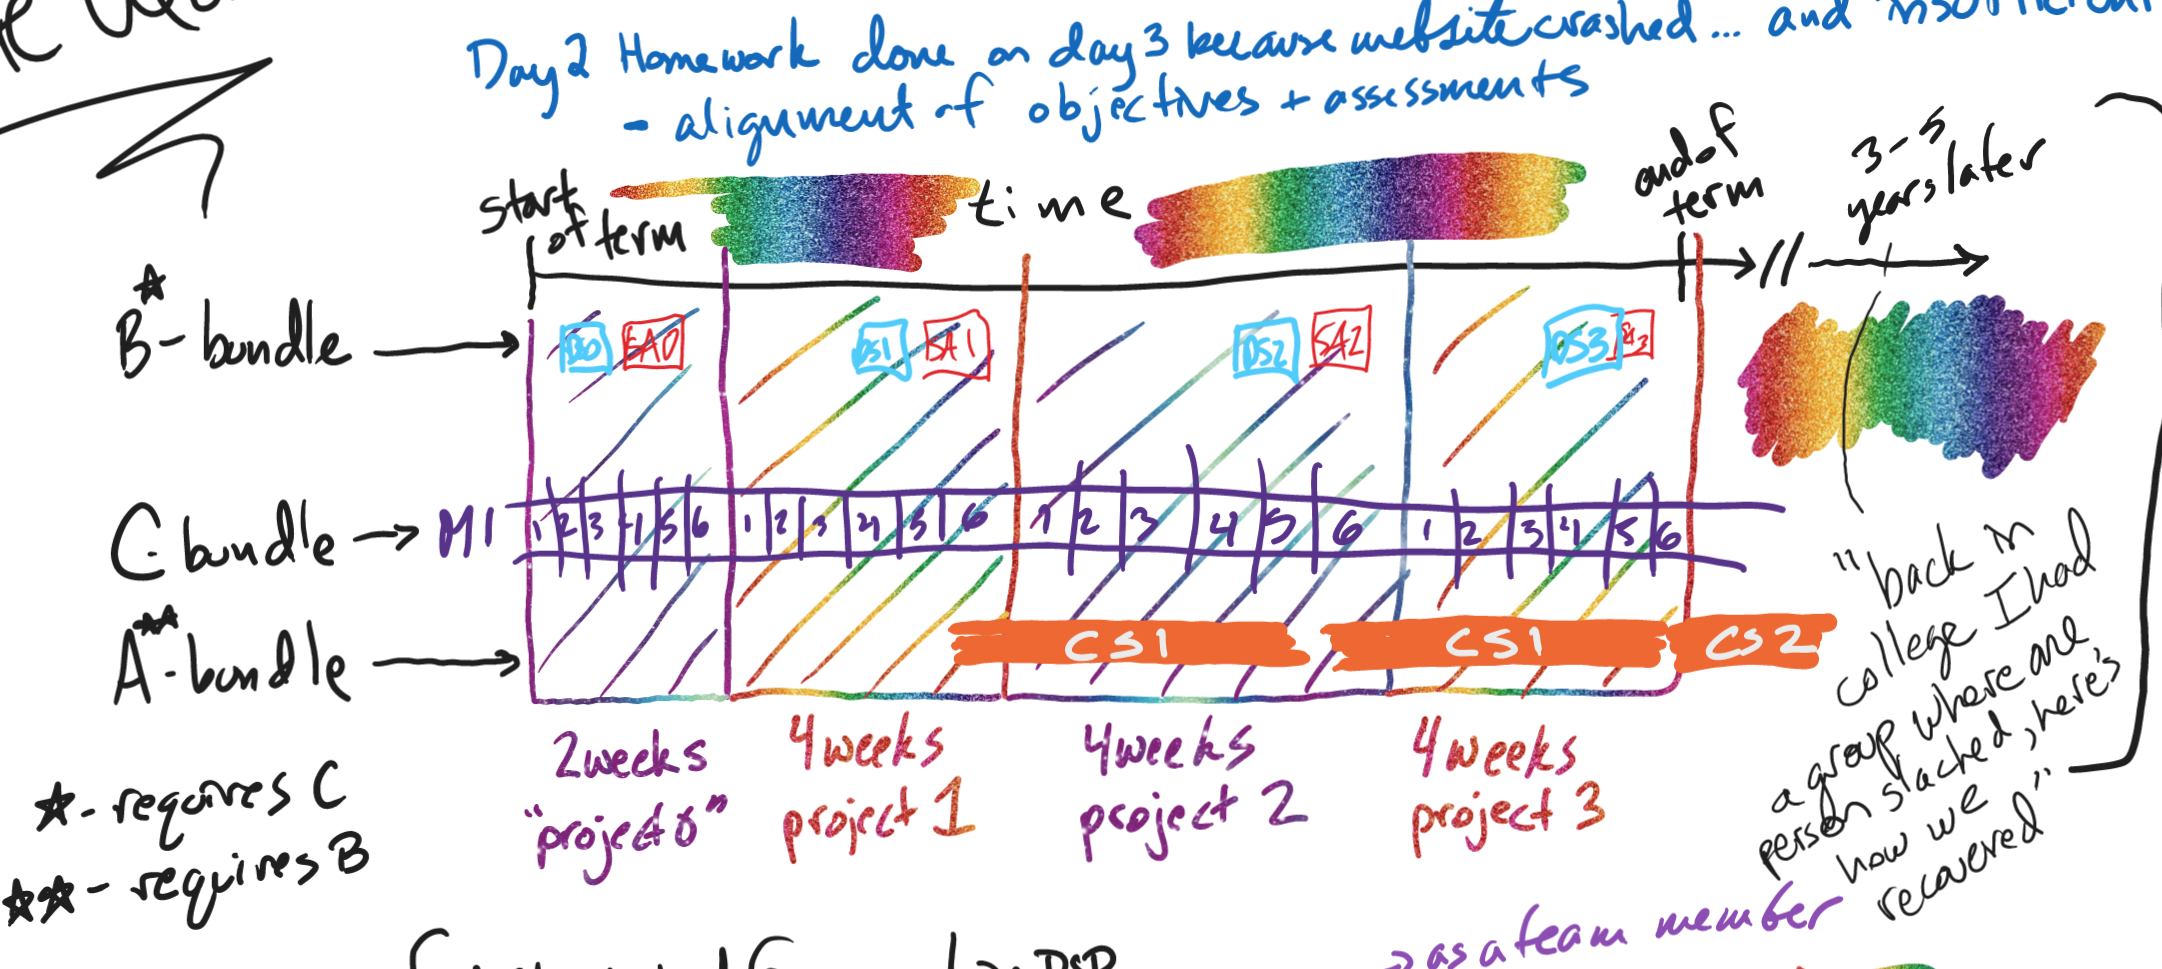 Day 2 Homework done on day 3 because website crashed... and insufficient
- alignment of objectives + assessments
start of term
time
end of term
3-5 years later
B★-bundle
DS0 SA0 DS1 SA1 DS2 SA2 DS3 SA3
C-bundle
M1
1 2 3 4 5 6 1 2 3 4 5 6 1 2 3 4 5 6 1 2 3 4 5 6
A★★-bundle
CS1 CS1 CS2
2 weeks
"project 0"
4 weeks
project 1
4 weeks
project 2
4 weeks
project 3
★ - requires C
★★ - requires B
"back in
college I had
a group where one
person slacked, here's
how we
recovered"
as a team member